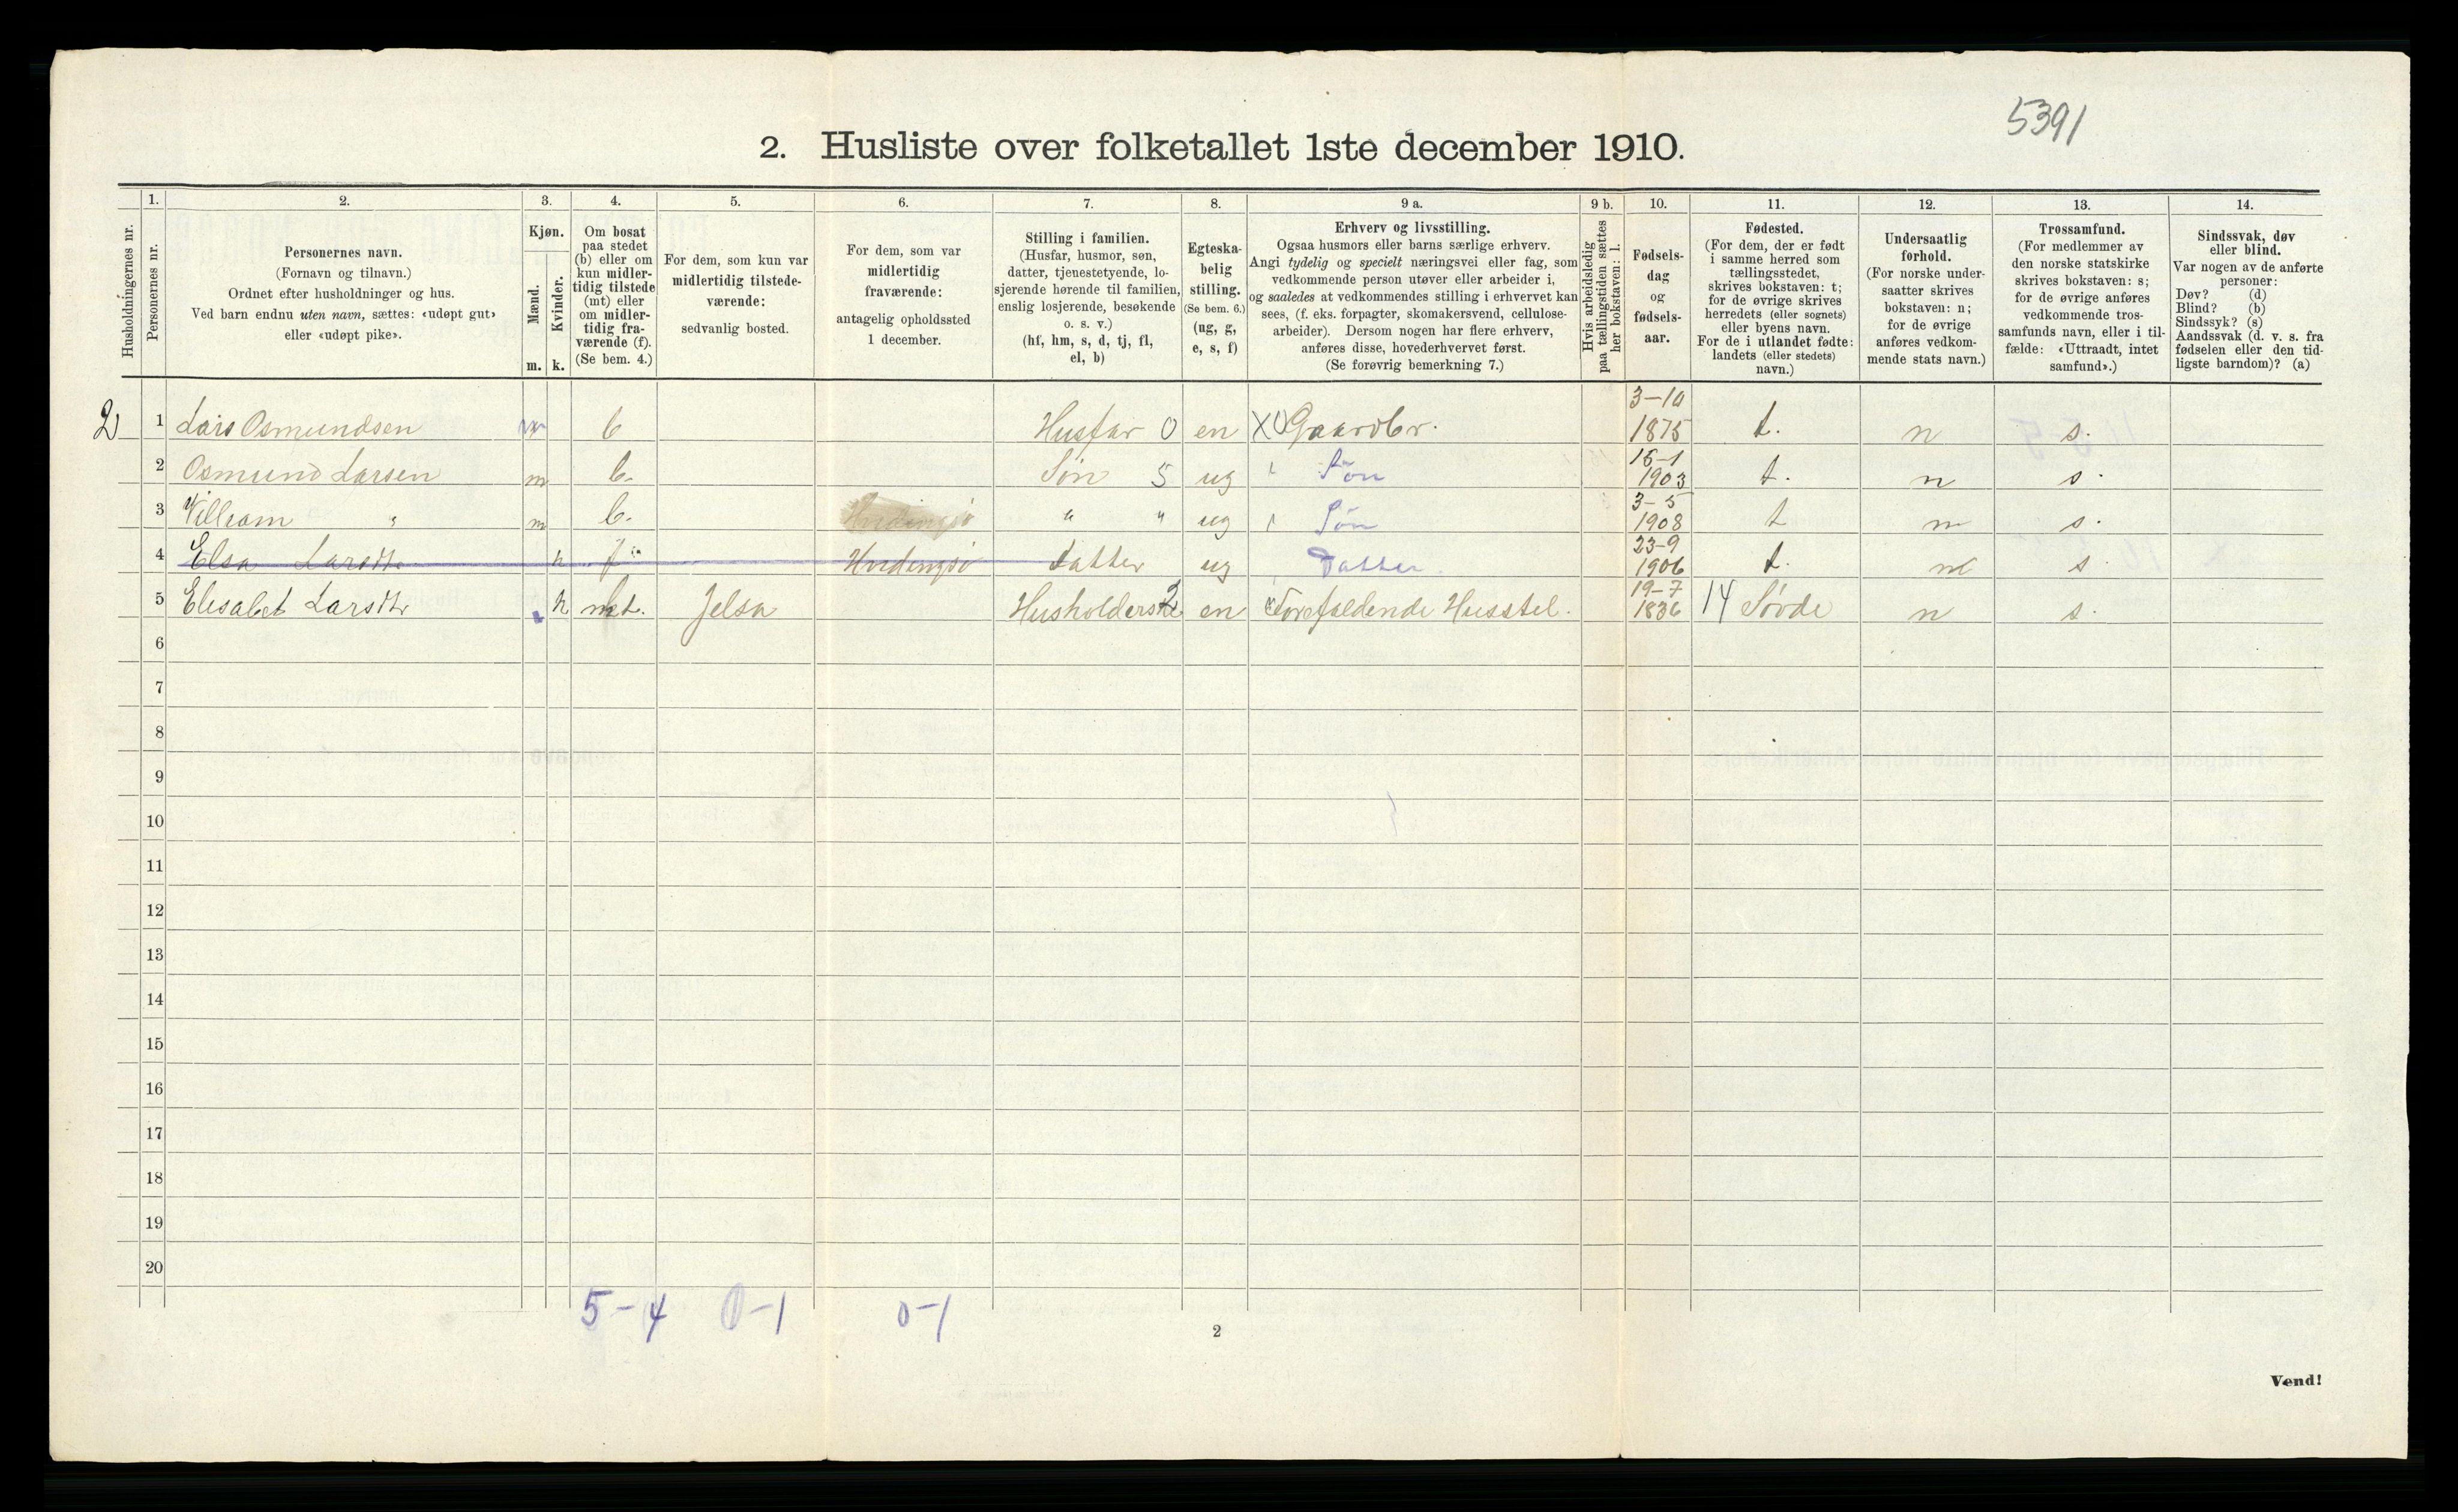 5391
2. Husliste over folketallet 1ste december 1910.
Husholdningernes nr.
1. Personernes nr.
2. Personernes navn.
(Fornavn og tilnavn.)
Ordnet efter husholdninger og hus.
Ved barn endnu uten navn, sættes: «udøpt gut»
eller «udøpt pike».
3. Kjøn.
Mænd. Kvinder.
m. k.
4. Om bosat
paa stedet
(b) eller om
kun midler-
tidig tilstede
(mt) eller
om midler-
tidig fra-
værende (f).
(Se bem. 4.)
5. For dem, som kun var
midlertidig tilstede-
værende:
sedvanlig bosted.
6. For dem, som var
midlertidig
fraværende:
antagelig opholdssted
1 december.
7. Stilling i familien.
(Husfar, husmor, søn,
datter, tjenestetyende, lo-
sjerende hørende til familien,
enslig losjerende, besøkende
o. s. v.)
(hf, hm, s, d, tj, fl,
el, b)
8. Egteska-
belig
stilling.
(Se bem. 6.)
(ug, g,
e, s, f)
9 a. Erhverv og livsstilling.
Ogsaa husmors eller barns særlige erhverv.
Angi tydelig og specielt næringsvei eller fag, som
vedkommende person utøver eller arbeider i,
og saaledes at vedkommendes stilling i erhvervet kan
sees, (f. eks. forpagter, skomakersvend, cellulose-
arbeider). Dersom nogen har flere erhverv,
anføres disse, hovederhvervet først.
(Se forøvrig bemerkning 7.)
9 b. Hvis arbeidsledig
paa tællingstiden sættes
her bokstaven: l.
10. Fødsels-
dag
og
fødsels-
aar.
11. Fødested.
(For dem, der er født
i samme herred som
tællingsstedet,
skrives bokstaven: t;
for de øvrige skrives
herredets (eller sognets)
eller byens navn.
For de i utlandet fødte:
landets (eller stedets)
navn.)
12. Undersaatlig
forhold.
(For norske under-
saatter skrives
bokstaven: n;
for de øvrige
anføres vedkom-
mende stats navn.)
13. Trossamfund.
(For medlemmer av
den norske statskirke
skrives bokstaven: s;
for de øvrige anføres
vedkommende tros-
samfunds navn, eller i til-
fælde: «Uttraadt, intet
samfund».)
14. Sindssvak, døv
eller blind.
Var nogen av de anførte
personer:
Døv? (d)
Blind? (b)
Sindssyk? (s)
Aandssvak (d. v. s. fra
fødselen eller den tid-
ligste barndom)? (a)
2 1 Lars Osmundsen m b Husfar 0 en X0 Gaardbr. 3-10 1875 t. n s.
2 Osmund Larsen m b. Søn 5 ug Søn 15-1 1903 t. n s.
3 William " m b. Hvidingsø " " ug Søn 3-5 1908 t n s.
4 Elsa Larsdtr k f Hvidingsø datter ug Datter 23-9 1906 t. n s.
5 Elisabet Larsdtr k mt. Jelsa Husholderske 2 en Forefaldende Husstel. 19-7 1836 14 Søvde n s.
6
7
8
9
10
11
12
13
14
15
16
17
18
19
20
5-4 0-1 0-1
2
Vend!